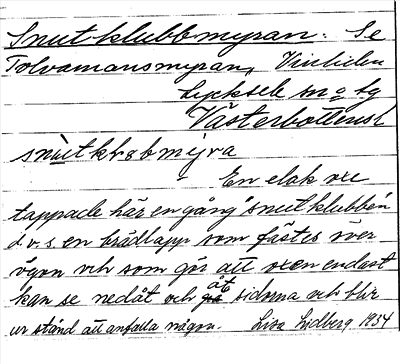 Snutklubbmyran. Se
Tolvmansmyran, Vinliden
Lycksele sn o tg
Västerbottens l
snùtklɞbmejra
En elak oxe
tappade här en gång "snutklubben"
d.v.s. en brädlapp som fästes över
ögon och som gör att oxen endast
kan se nedåt och åt sidorna och blir
ur stånd att anfalla någon. Lisa Lidberg 1934